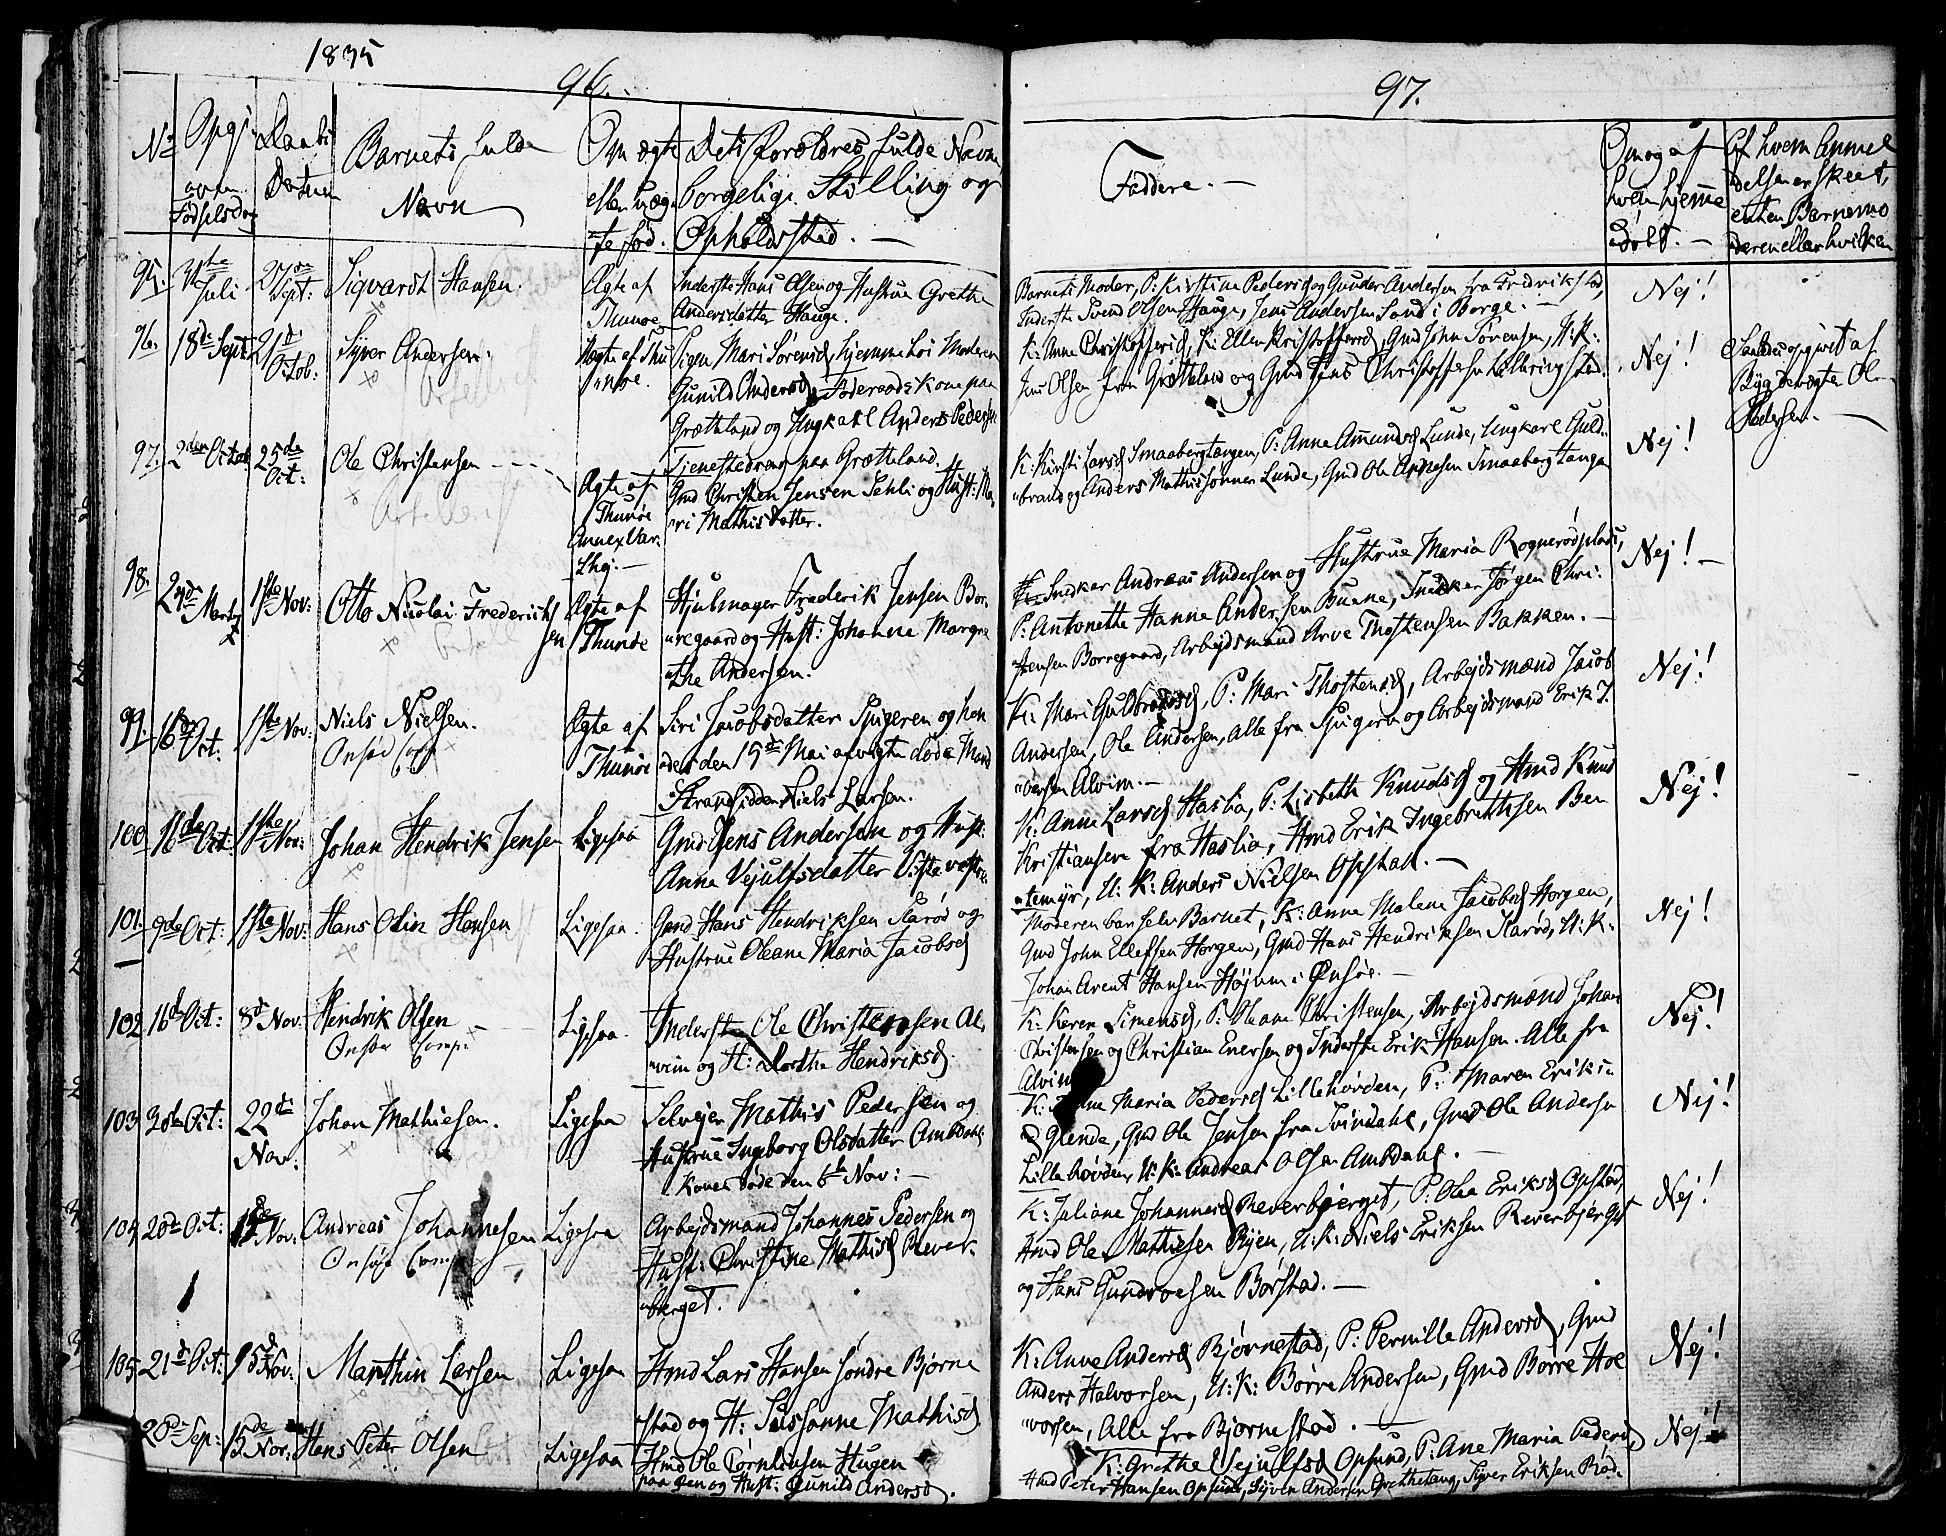 1835
96.
No
Opgivven Fødselsdag
Daabs Datum
Barnets fulde Navn
Om ægte eller uægte fød.
Dets Forældres fulde Navne borgelige Stilling og Opholdsstad. —
95. 31te Juli 27de Sept: Sigvardt Hansen. Ægte af Thunøe
Inderste Hans Olsen og Hustrue Grethe
Andersdatter Hauge.
96. 18de Sept 21de Octob: Syver Andersen. Uægte af Thunøe.
Pigen Mari Sørensd, hjemme hos Moderen
Gunild Andersd, Føderaadskone paa
Grætteland og Ungkarl Anders Pedersen
Tjenestedreng paa Grætteland.
97. 2den Octob 25de Oct: Ole Christensen Ægte af Thunøe Annex Var:
Gmd Christen Jensen Sehli og Hust: Ma
"ri Mathisdatter.
98. 24de Marty 1ste Nov: Otto Nicolai Frederiksen Ægte af Thunøe
Hjulmager Frederik Jensen Bor
"regaard og Hust: Johanne Margre
"the Andersen.
99. 16de Oct. 1ste Nov: Niels Nielsen. Ægte af Thunøe
Onsøe Comp
Siri Jacobsdatter Spigeren og hen
"des den 15de Mai afvigte døde Mand
Strandsidder Niels Larsen.
100. 16de Oct: 1ste Nov: Johan Hendrik Jensen Ligesaa
Gmd Jens Andersen og Hust:
Anne Vejulfsdatter Viste vestre
101. 9de Oct: 1ste Nov: Hans Odin Hansen Ligesaa
Gmd Hans Hendriksen Karød og
Hustrue Oleane Maria Jacobsd
102 16d Oct: 8d Nov: Hendrik Olsen Ligesaa
Onsøe Comp:
Inderste Ole Christensen Al
"vim og H: Dorthe Hendriksd.
103 Oct: 22de Nov: Johan Mathiesen. Ligesaa
Selvejer Mathis Pedersen og
Hustrue Ingeborg Olsdatter Ambdahl
Konen døde den 6te Nov: —
104 20de Oct: 15de Nov: Andreas Johannesen Ligesaa
Onsøe Comp
Arbejdsmand Johannes Pedersen og
Hust: Christine Mathisd Rever
"berget.
105. 21de Oct: 15de Nov: Marthin Larsen Ligesaa
Hmd Lars Hansen søndre Bjørne
stad og H: Sussanne Mathisd
20de Sep: 15de Nov: Hans Peter Olsen Ligesaa
Hmd Ole Hugen
og Hust: Gunild Andersd.
97.
Faddere. —
Om og af hvem hjemmedøbt. —
Af hvem Anmeldelsen er skeet, enten Barnemoderen eller hvilken
Barnets Moder, P: Kirstine Pedersd og Gunder Andersen fra Fredrikstad,
Inderste Svend Olsen Hauge, Jens Andersen Sand i Borge. —
Nej!
K: Anne Christoffersd, K: Ellen Kristoffersd, Gmd John Sørensen, U: K:
Jens Olsen fra Grætteland og Gmd Jens Christoffersen
Nej!
Saaledes opgivet af
Ole
Pedersen. —
K: Kirsti Larsd Smaabergtangen, P: Anne Amundsd Lunde, Ungkarl Guld
"brand og Anders Mathissønner Lunde, Gmd Ole Arnesen Smaabergtangen
Nej!
Snedker Andreas Andersen og Hustrue Maria Rognerødplads,
P: Antonette Hanne Andersen Buene, Snedker Jørgen Chri:
"stensen Borregaard, Arbejdsmand Arve Thostensen Bakken. —
Nej! —
K: Mari Guldbrandsd, P: Mari Thostensd, Arbejdsmænd Jacob
Andersen, Ole Andersen, Alle fra Spigeren og Arbejdsmand Erik I.
"versen Alvim. —
Nej!
K: Anne Larsd Haslia, P: Lisbeth Knudsd og Hmd Knud
Kristiansen fra Haslia, Hmd Erik Ingebrethsen Ben
"temyr, U: K: Anders Nielsen Opstad. —
Nej!
Moderen bar selv Barnet, K: Anne Malene Jacobsd Horgen,
Gmd John Ellefsen Horgen, Gmd Hans Hendriksen Karød, U: K:
Johan Arent Hansen Højum i Onsøe. —
Nej!
K: Keren Simensd, P: Oleane Christensen, Arbejdsmænd Johan
Christensen og Christian Enersen og Inderste Erik Hansen. Alle fra
Alvim
Nej!
K: Maria Pedersd Lillehovden, P: Maren Eriks
d Glende, Gmd Ole Jensen fra Svindahl, Gmd Ole Andersen
Lillehovden, U: K: Andreas Olsen Ambdahl. —
Nej!
K: Juliane Johannesd Reverbjerget, P: Olea Eriksd Opstad,
Hmd Ole Mathiesen Ryen, U: K: Niels Eriksen Reverbjerget
og Hans Gundersen Borstad. —
Nej!
K: Anne Andersd Bjørnestad, P: Pernille Andersd, Gmd
Anders Halvorsen, U: K: Børre Andersen, Gmd Børre Hal
"vorsen, Alle fra Bjørnestad. —
Nej!
K: Grethe Vejulfsd Opsund, P: Ane Maria Pedersd,
Hmd Peter Hansen Opsund, Syver Andersen Syver Eriksen Rød.
Nej!